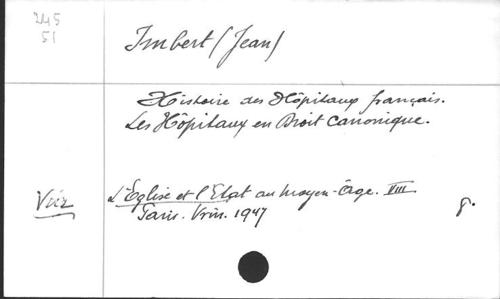 245
51
Imbert (Jean)
Histoire des Hôpitaux français.
Les Hôpitaux en Droit Canonique.
L'Eglise et l'Etat au moyen-âge. VIII
Paris. Vrin. 1947
8.